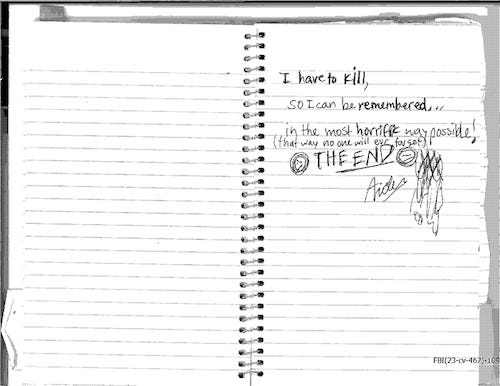 I have to kill,
so I can be remembered...
in the most horrific way possible!
(that way no one will ever forget)
THE END
Aiden
FBI(23-cv-467)-104